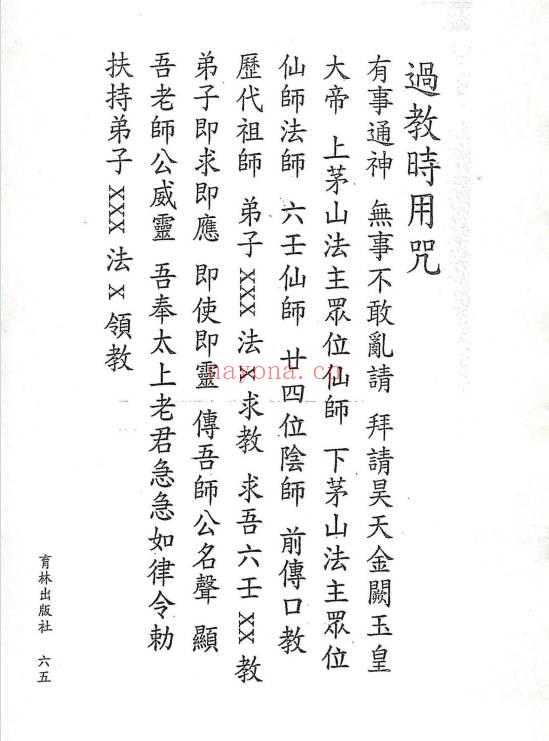 過教時用咒
有事通神　無事不敢亂請　拜請昊天金闕玉皇
大帝　上茅山法主眾位仙師　下茅山法主眾位
仙師法師　六壬仙師　廿四位陰師　前傳口教
歷代祖師　弟子XXX法X求教　求吾六壬XX教
弟子即求即應　即使即靈　傳吾師公名聲　顯
吾老師公威靈　吾奉太上老君急急如律令勅
扶持弟子XXX法X領教
育林出版社　六五
nayona.cn